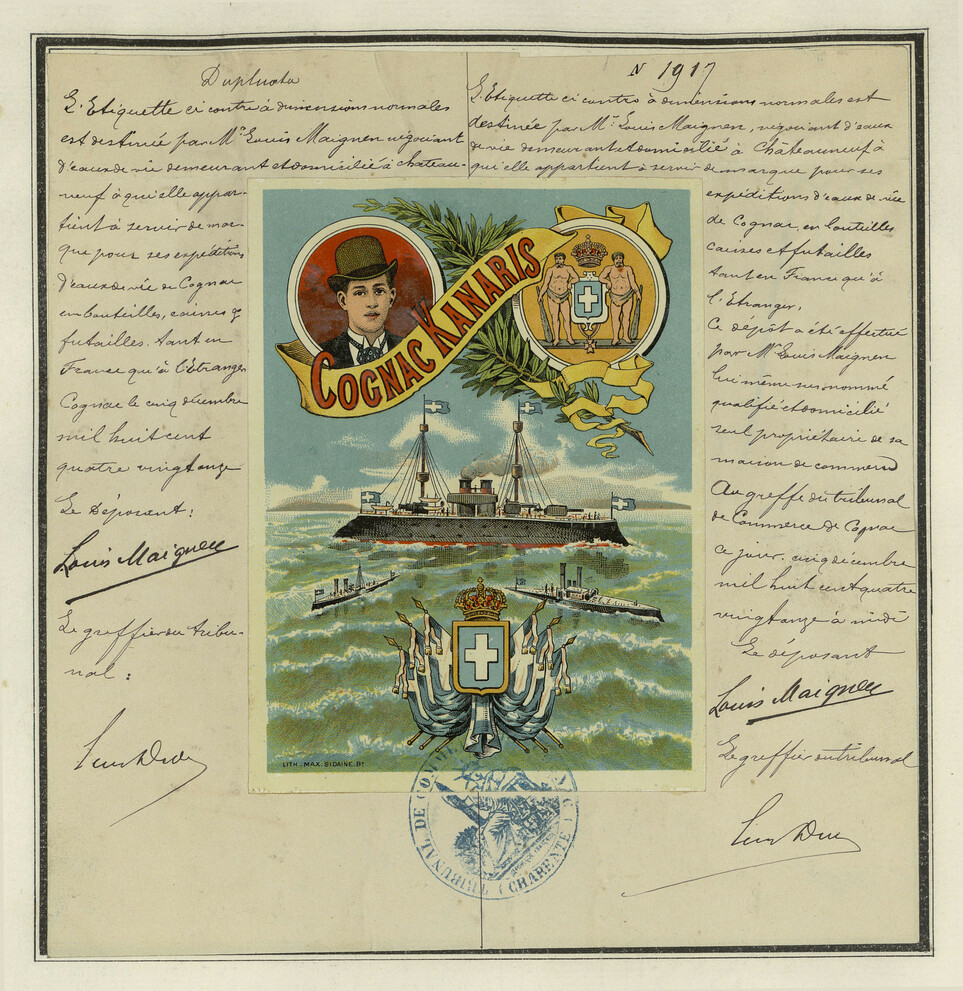 Duplicata
L'Etiquette ci contre à dimensions normales
est destinée par Mr. Louis Maignen négociant
d'eaux de vie demeurant et domicilié à Chateau-
neuf à qui elle appar-
tient à servir de mar-
que pour ses expéditions
d'eaux de vie de Cognac
en bouteilles, caisses &
futailles. tant en
France qu'à l'Etranger
Cognac le cinq décembre
mil huit cent
quatre vingt onze
Le Déposant:
Louis Maignen
Le greffier du tribu-
nal:
N 1917
L'Etiquette ci contre à dimensions normales est
destinée par Mr. Louis Maignen, négociant d'eaux
de vie demeurant et domicilié à Châteauneuf à
qui elle appartient à servir de marque pour ses
expéditions d'eaux de vie
de Cognac, en bouteilles
caisses et futailles
tant en France qu'à
l'Etranger.
Ce dépôt a été effectué
par Mr Louis Maignen
lui même susnommé
qualifié et domicilié
seul propriétaire de sa
maison de commerce
Au greffe du tribunal
de Commerce de Cognac
ce jour, cinq décembre
mil huit cent quatre
vingt onze à midi
Le déposant
Louis Maignen
Le greffier du tribunal
COGNAC KANARIS
LITH. MAX. SIDAINE. Bx
TRIBUNAL DE COMM
(CHARENTE)